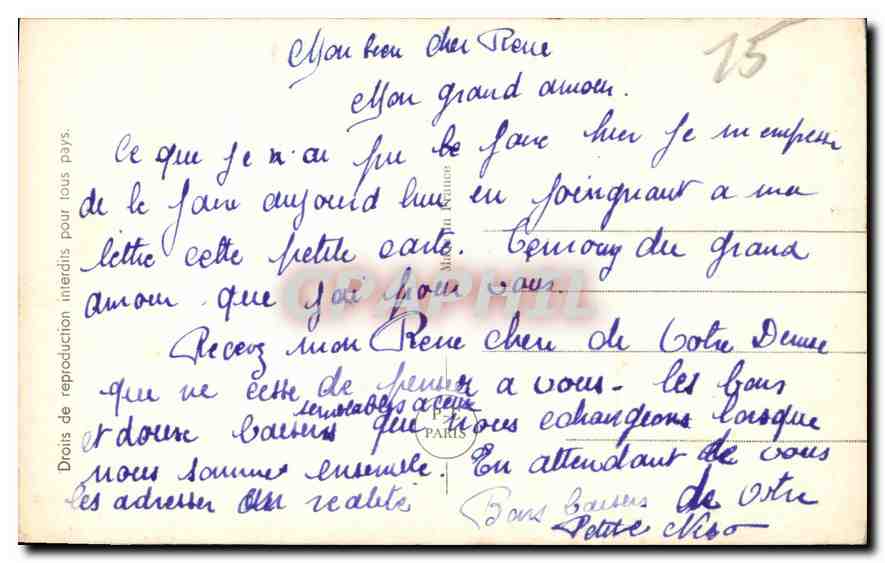 15
Mon bien cher Rene
Mon grand amour.
Ce que je n'ai pu le faire hier je m'empresse
de le faire aujourd hui en joingnant a ma
lettre cette petite carte. Temoing du grand
amour que j'ai pour vous.
Recevez mon Rene cheri de Votre Denise
que ne cesse de penser a vous - les bons
semblables a ceux
et doux baisers que nous echangeons lorsque
nous sommes ensemble. En attendant de vous
les adresser en realité
Bons baisers de Votre
Petite
Droits de reproduction interdits pour tous pays.
Made in France
P.C
PARIS
CPAPHIL